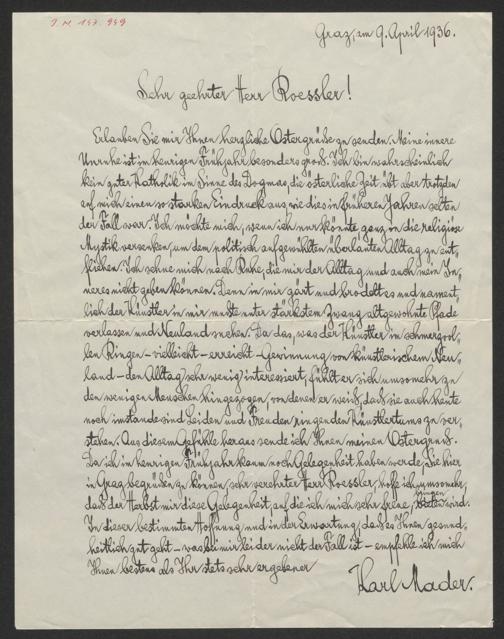 I.N. 157.949
Graz, am 9. April 1936.
Sehr geehrter Herr Roessler!
Erlauben Sie mir Ihnen herzliche Ostergrüße zu senden. Meine innere
Unruhe ist im heurigen Frühjahr besonders groß. Ich bin wahrscheinlich
kein guter Katholik im Sinne des Dogmas, die österliche Zeit übt aber trotzdem
auf mich einen so starken Eindruck aus wie dies in früheren Jahren selten
der Fall war. Ich möchte mich, wenn ich nur könnte ganz in die religiöse
Mystik versenken, um dem politisch aufgewühlten überlauten Alltag zu ent-
fliehen. Ich sehne mich nach Ruhe, die mir der Alltag und auch mein In-
neres nicht geben können. Denn in mir gärt und brodelt es und nament-
lich der Künstler in mir mußte unter stärkstem Zwang altgewohnte Pfade
verlassen und Neuland suchen. Da das, was der Künstler in schmerzvol-
len Ringen – vielleicht – erreicht – Gewinnung von künstlerischem Neu-
land – den Alltag sehr wenig interessiert, fühlt er sich umsomehr zu
den wenigen Menschen hingezogen, von denen er weiß, daß sie auch heute
noch imstande sind Leiden und Freuden ringenden Künstlertums zu ver-
stehen. Aus diesem Gefühle heraus sende ich Ihnen meinen Ostergruß.
Da ich im heurigen Frühjahr kaum noch Gelegenheit haben werde, Sie hier
in Graz begrüßen zu können, sehr verehrter Herr Roessler, hoffe ich umsomehr,
daß der Herbst mir diese Gelegenheit, auf die ich mich sehr freue, bringen wird.
In dieser bestimmten Hoffnung und in der Erwartung, daß es Ihnen gesund-
heitlich gut geht – was bei mir leider nicht der Fall ist – empfehle ich mich
Ihnen bestens als Ihr stets sehr ergebener
Karl Mader.